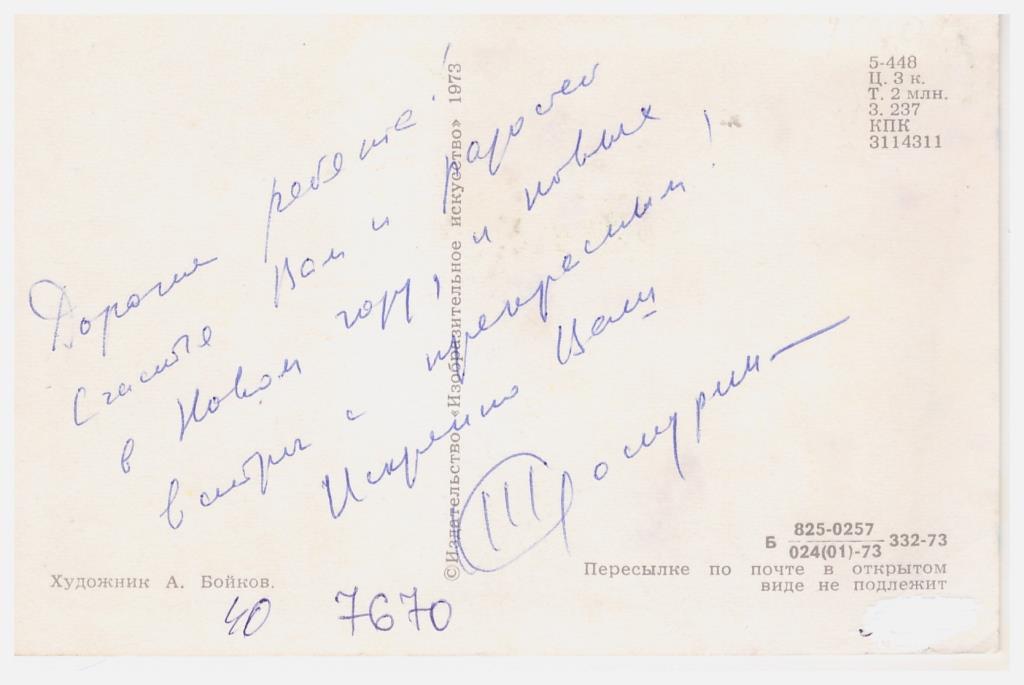 Дорогие ребята!
Счастья Вам и радостей
в Новом году, и новых
встреч с прекрасным!
Искренно Ваш
5-448
Ц. 3 к.
Т. 2 млн.
З. 237
КПК
3114311
© Издательство «Изобразительное искусство» 1973
Б 825-0257
024(01)-73 332-73
Пересылке по почте в открытом
виде не подлежит
Художник А. Бойков.
40 7670